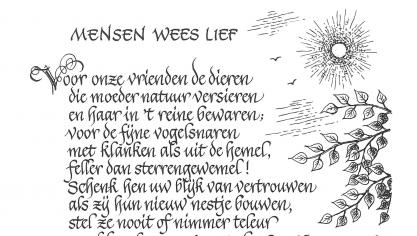 MENSEN WEES LIEF
Voor onze vrienden de dieren
die moeder natuur versieren
en haar in 't reine bewaren;
voor de fijne vogelsnaren
met klanken als uit de hemel,
feller dan sterrengewemel!
Schenk hen uw blijk van vertrouwen
als zij hun nieuw nestje bouwen,
stel ze nooit of nimmer teleur